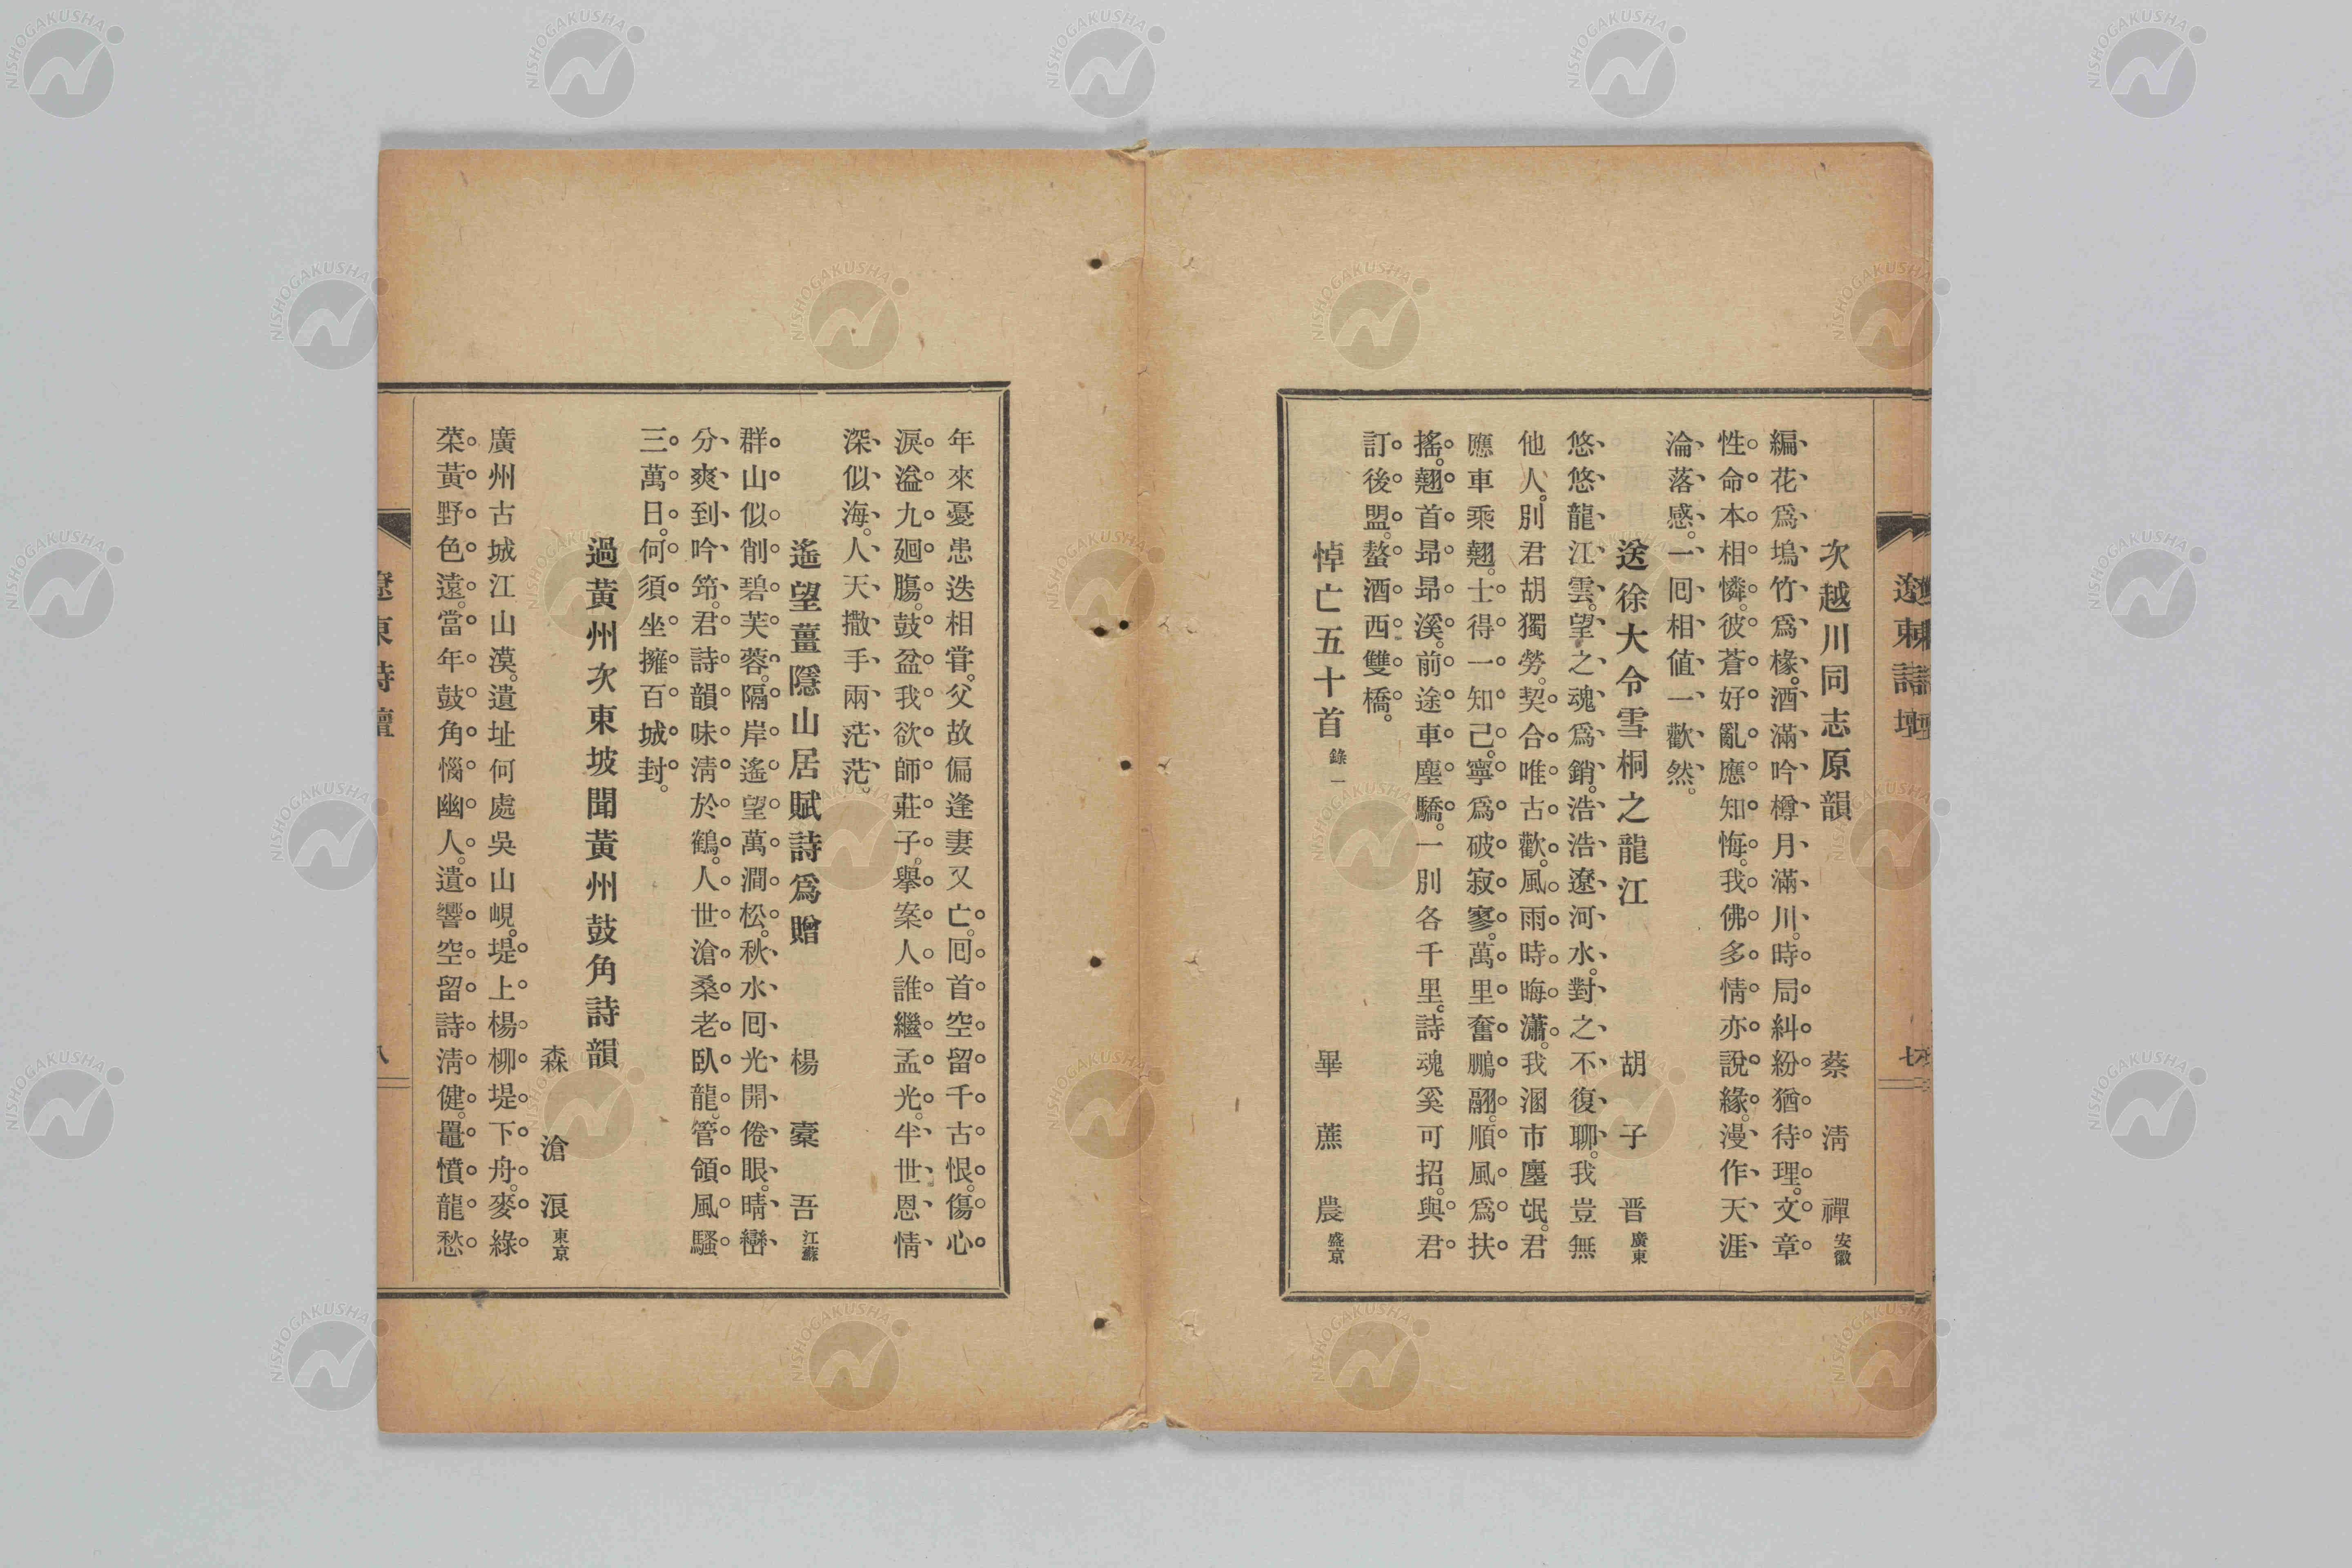 遼東詩壇
七
次越川同志原韻 蔡淸禪 安徽
編花爲塢竹爲椽。酒滿吟樽月滿川。時局糾紛猶待理。文章
性命本相憐。彼蒼好亂應知悔。我佛多情亦說緣。漫作天涯
淪落感。一囘相値一歡然。
送徐大令雪桐之龍江 胡子晋 廣東
悠悠龍江雲。望之魂爲銷。浩浩遼河水。對之不復聊。我豈無
他人。別君胡獨勞。契合唯古歡。風雨時晦瀟。我溷市廛氓。君
應車乘翹。士得一知己。寧爲破寂寥。萬里奮鵬翮。順風爲扶
搖。翹首昻昻溪。前途車塵驕。一別各千里。詩魂奚可招。與君
訂後盟。螯酒西雙橋。
悼亡五十首 錄一 畢蔗農 盛京
年來憂患迭相甞。父故偏逢妻又亡。囘首空留千古恨。傷心
淚溢九廻膓。鼓盆我欲師莊子。擧案人誰繼孟光。半世恩情
深似海。人天撒手兩茫茫。
遙望薑隱山居賦詩爲贈 楊槖吾 江蘇
群山似削碧芙蓉。隔岸遙望萬澗松。秋水囘光開倦眼。晴巒
分爽到吟筇。君詩韻味淸於鶴。人世滄桑老臥龍。管領風騷
三萬日。何須坐擁百城封。
過黃州次東坡聞黃州鼓角詩韻
森滄浪 東京
廣州古城江山漠。遺址何處吳山峴。堤上楊柳堤下舟。麥綠
菜黃野色遠。當年鼓角惱幽人。遺響空留詩淸健。鼂憤龍愁
遼東詩壇
八